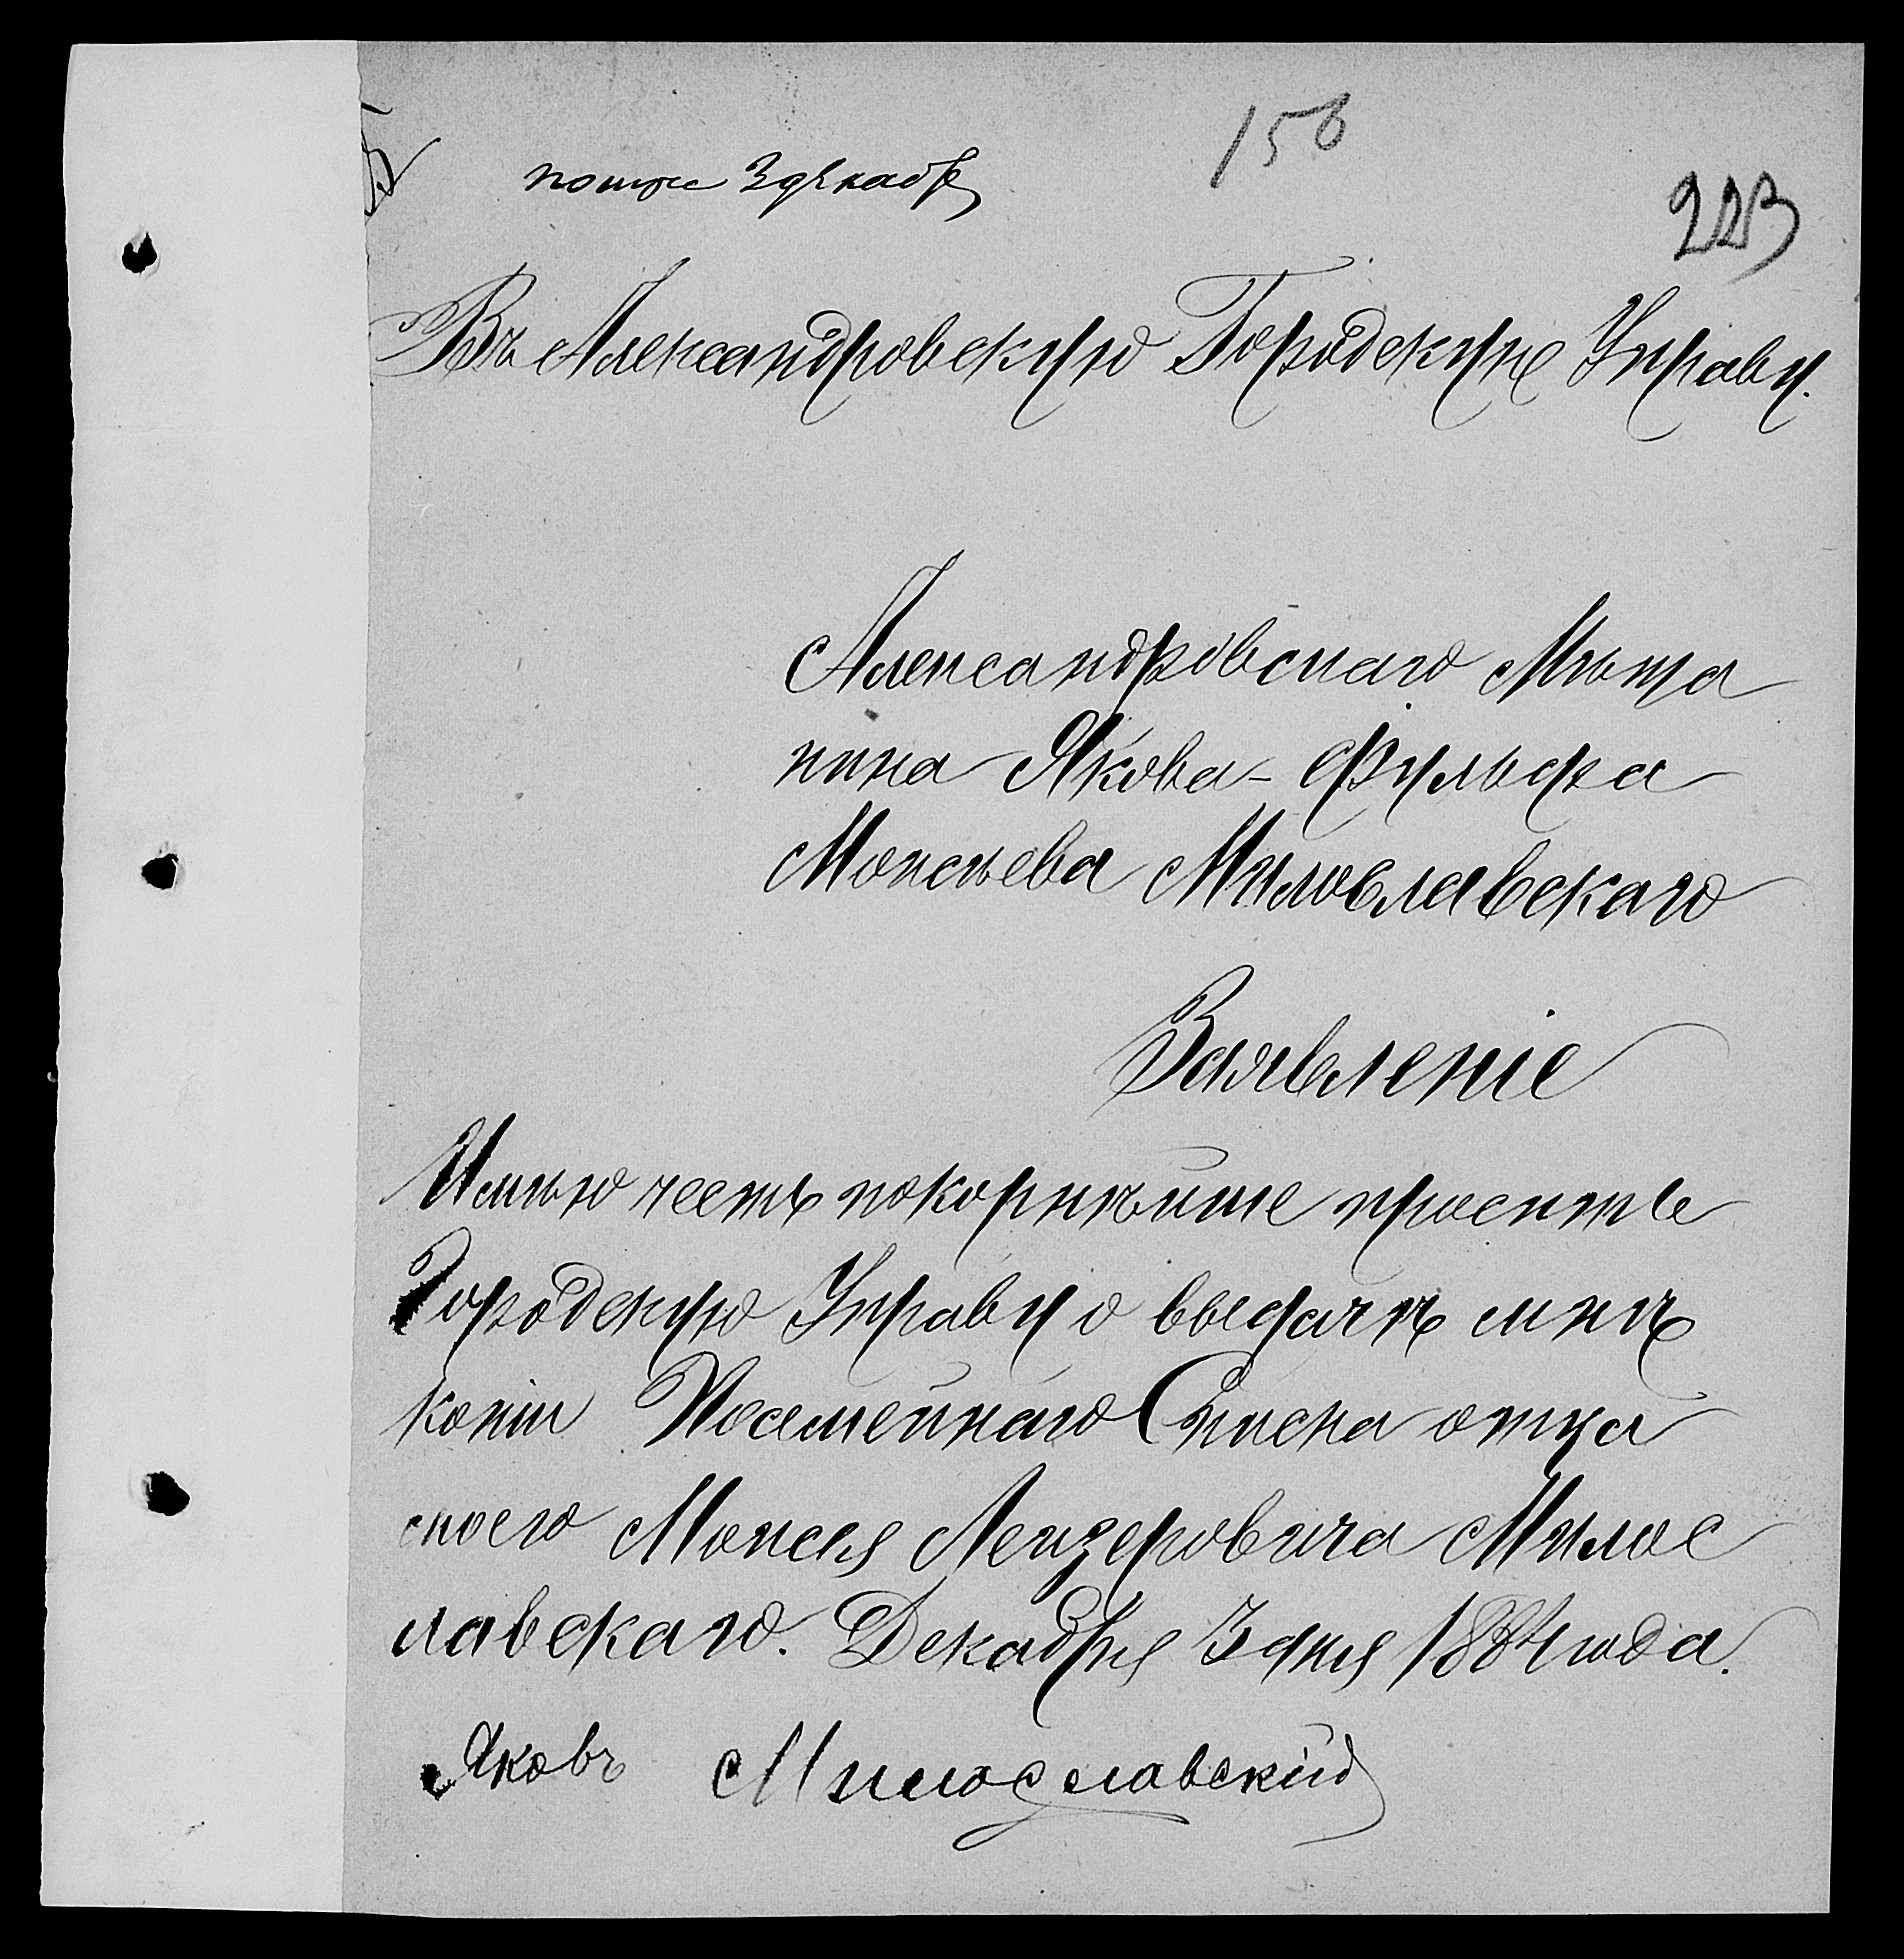 150
223
3 декабр
Въ Александровскую Городскую Управу.
Александровскаго Мѣща
нина Якова-Вульфа
Моисѣева Милославскаго
Заявленіе
Имѣю честь покорнѣйше просить
Городскую Управу о выдачѣ мнѣ
копіи Посемейнаго Списка отца
моего Моисея Лейзеровича Милос
лавскаго. Декабря 3 дня 1884 года.
Яковъ Милославскій